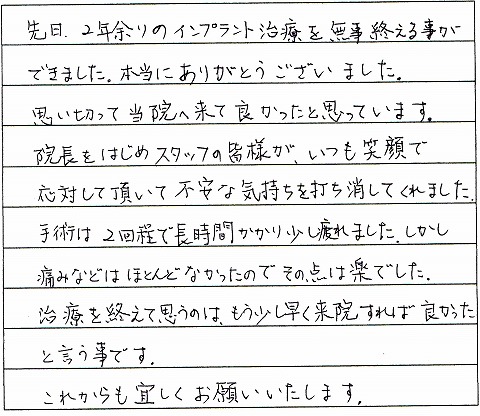 先日、2年余りのインプラント治療を無事終える事が
できました。本当にありがとうございました。
思い切って当院へ来て良かったと思っています。
院長をはじめスタッフの皆様が、いつも笑顔で
応対して頂いて不安な気持ちを打ち消してくれました。
手術は2回程で長時間かかり少し疲れました。しかし
痛みなどはほとんどなかったのでその点は楽でした。
治療を終えて思うのは、もう少し早く来院すれば良かった
と言う事です。
これからも宜しくお願いいたします。